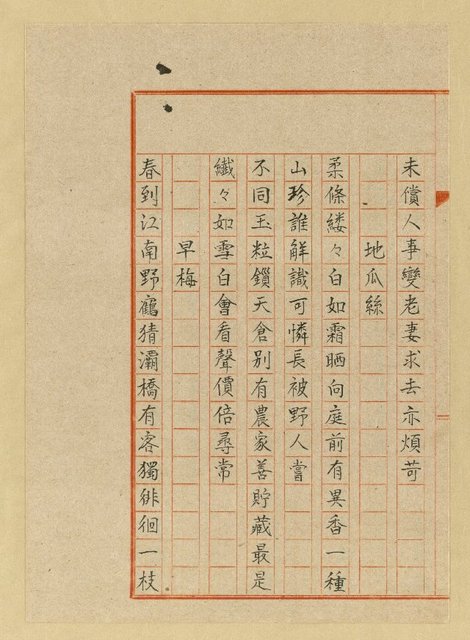 未償人事變老妻求去亦煩苛
地瓜絲
柔條縷々白如霜晒向庭前有異香一種
山珍誰解識可憐長被野人嘗
不同玉粒鎖天倉別有農家善貯藏最是
纖々如雪白會看聲價倍尋常
早梅
春到江南野鶴猜灞橋有客獨徘徊一枝